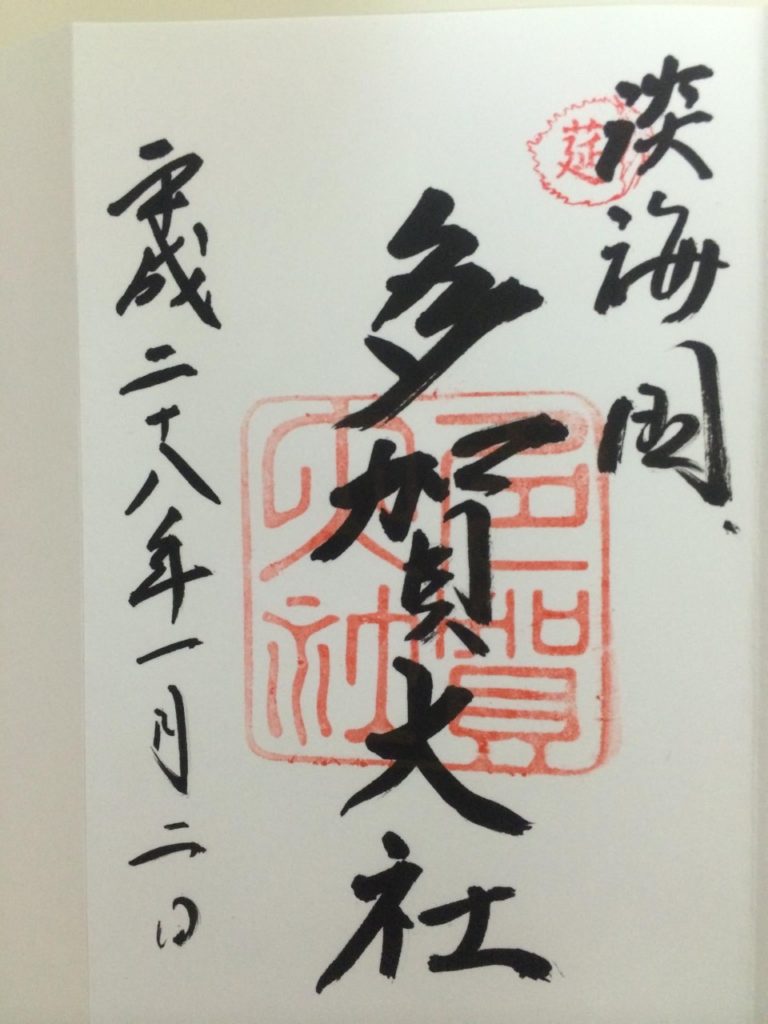 淡海国
莚
多賀大社
多賀
大社
平成二十八年一月二日